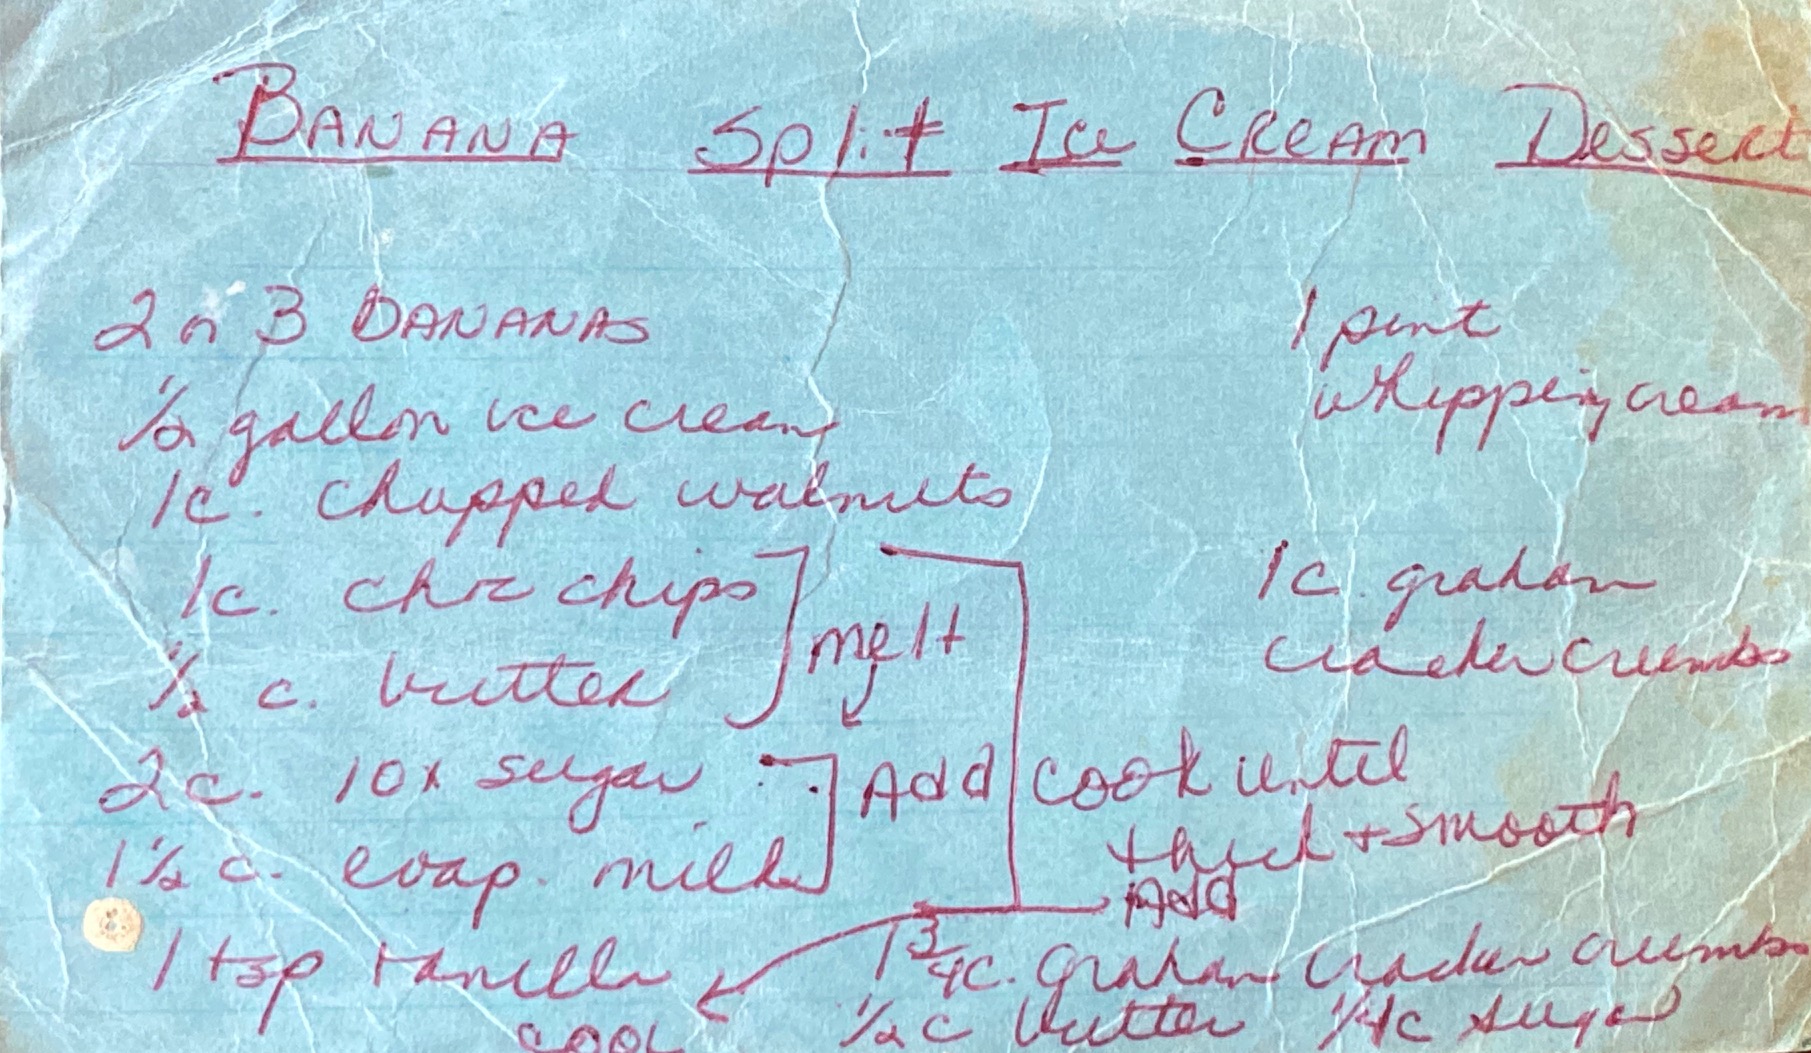 BANANA Split Ice CREAM Dessert
2 or 3 BANANAS
1 pint
whipping cream
1/2 gallon ice cream
1c. chopped walnuts
1c. choc chips
1/2 c. butter
melt
1c. graham
cracker crumbs
2c. 10x sugar
1 1/2 c. evap. milk
Add
cook until
thick + smooth
Add
1 tsp vanilla
COOL
1 3/4 c. graham cracker crumbs
1/2 c butter 1/4c sugar